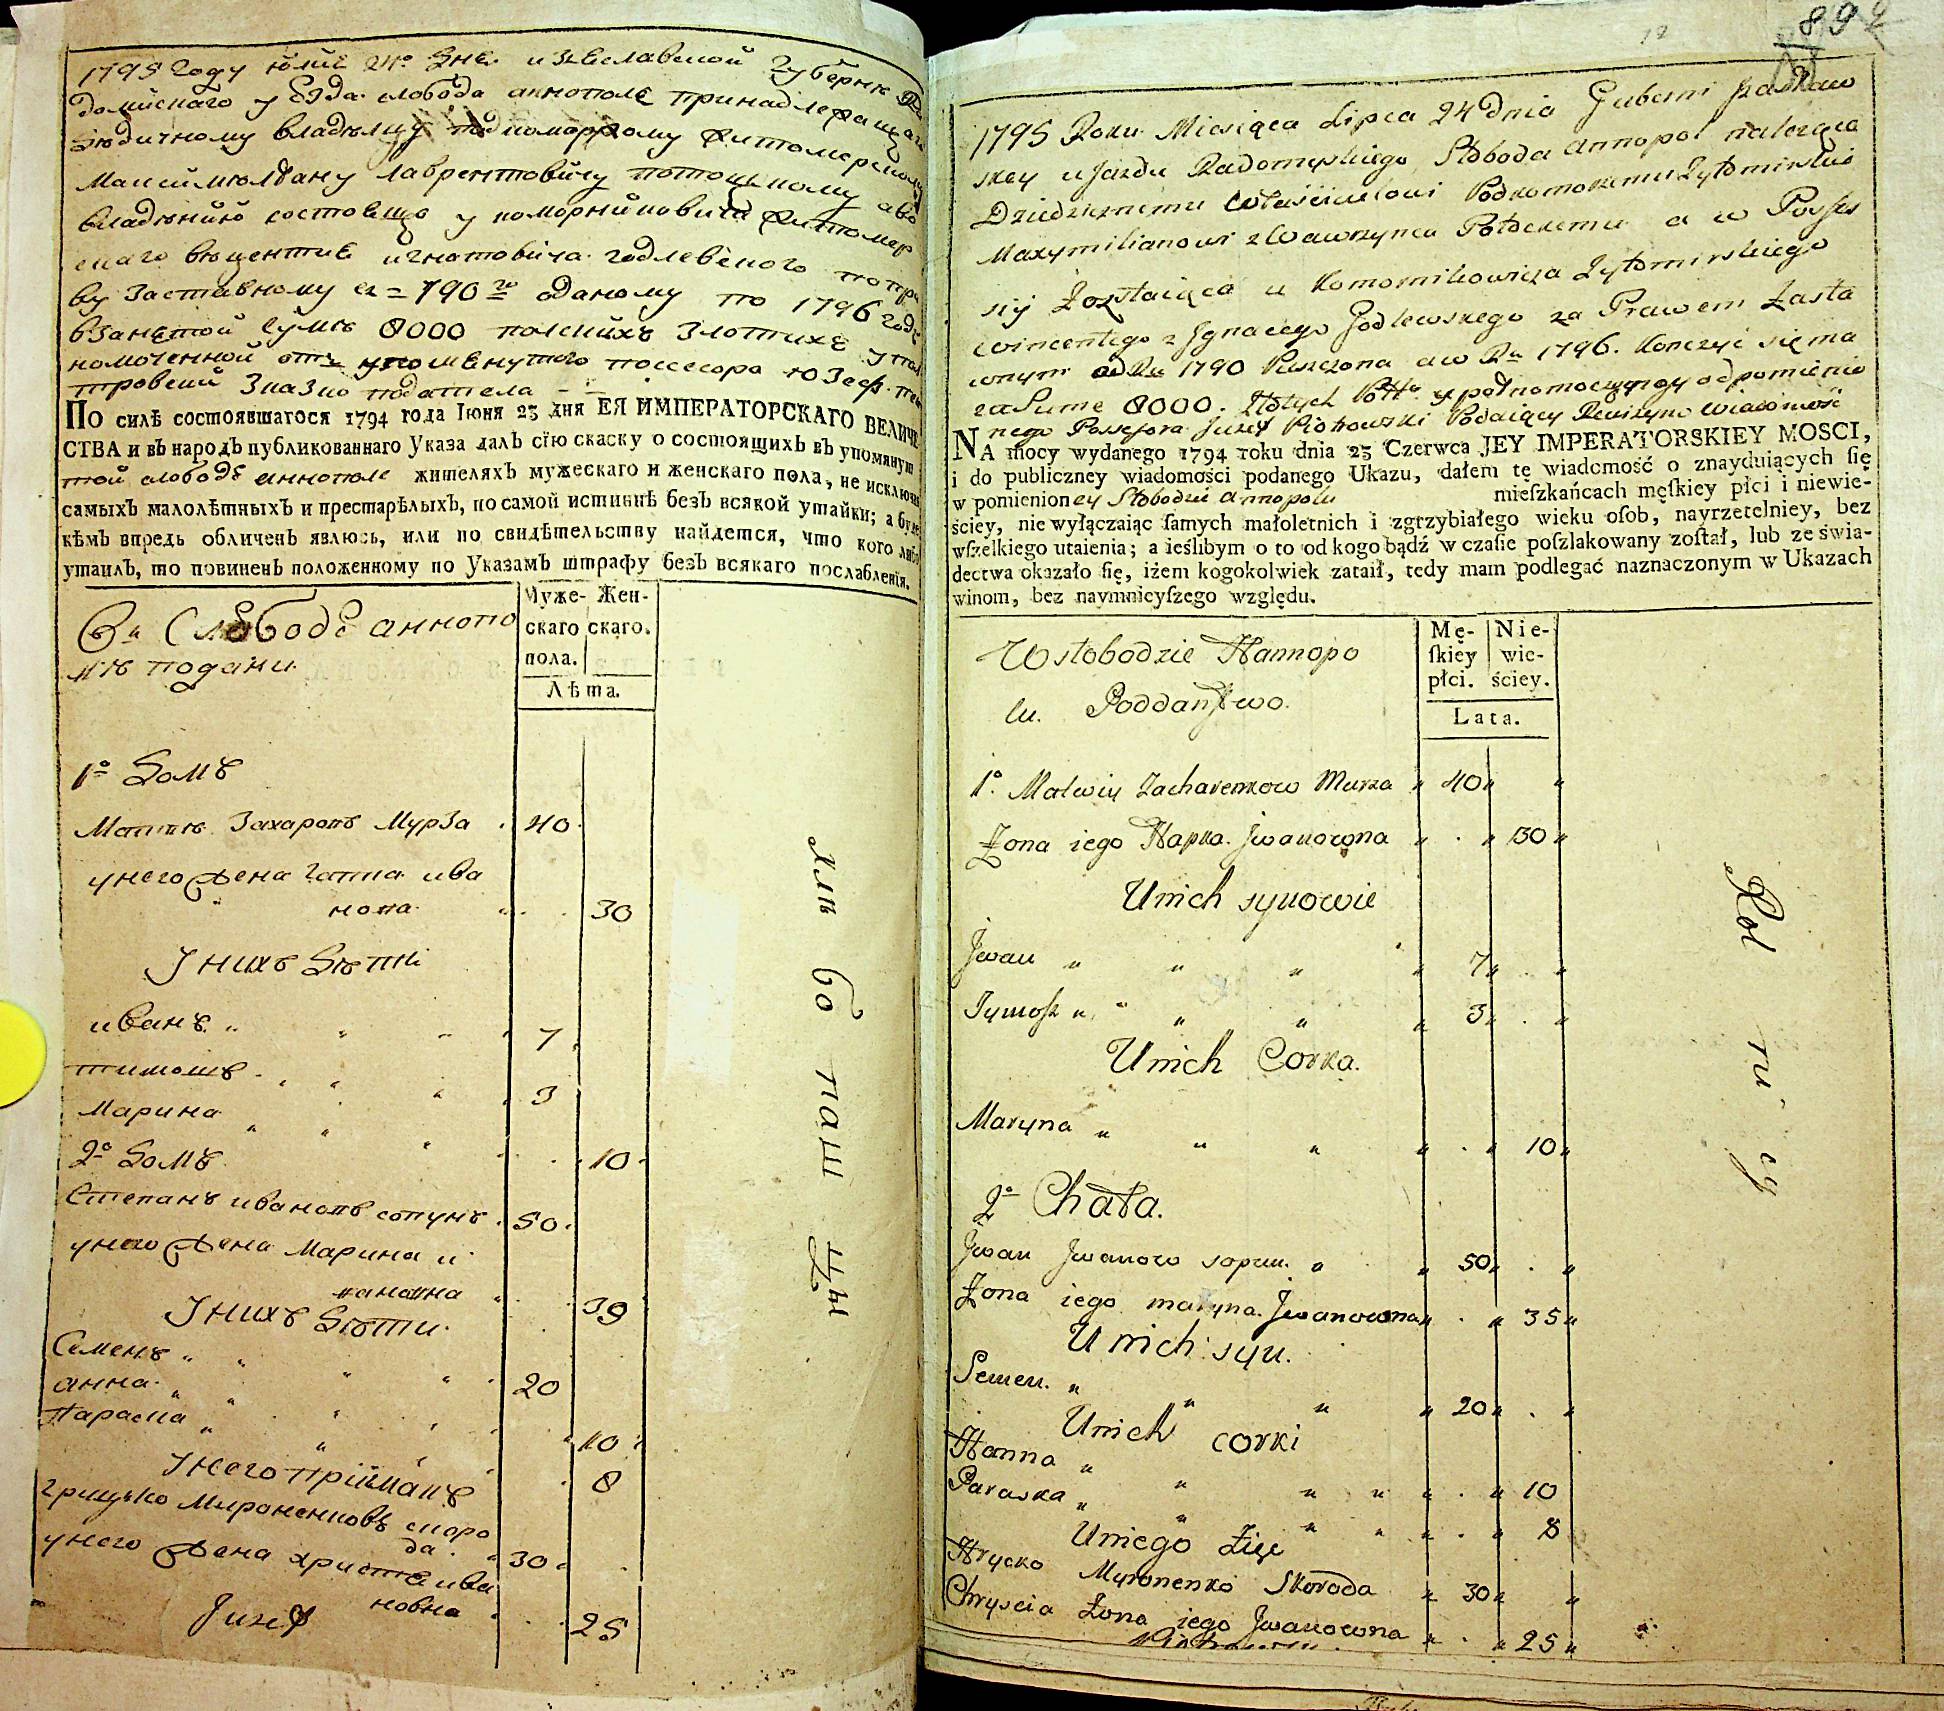 1795 Году юліе 24º дне изеславской Губерніи
домискаго уезда слобода аннополе принадлежащаго
владелцу подкоморрому житомерскому
Максимилияну лаврентовичу потоцкому
владению состоящо у коморниковича житомер
скаго вицентие игнатовича годлевского
ву Заставному с 790 го по 1796 году
взанятой сумѣ 8000 полскихъ Злоттихъ
номоченной отъ упомянутого поссесора Юзеф
тровский
По силѣ состоявшагося 1794 года Іюня 23 дня ЕЯ ИМПЕРАТОРСКАГО ВЕЛИЧЕ
СТВА и въ народъ публикованнаго Указа далъ сїю скаску о состоящихъ въ упомянут
той слободе аннополе жителяхъ мужескаго и женскаго пола, не исключая
самыхъ малолѣтныхъ и престарѣлыхъ, по самой истиннѣ безъ всякой утайки; а буде
кѣмъ впредь обличенъ явлюсь, или по свидѣтельству найдется, что кого либо
утаилъ, то повиненъ положенному по Указамъ штрафу безъ всякаго послабленїя.
Муже- Жен-
скаго скаго.
пола.
Лѣта.
Въ Слободе аннопо
лѣ подани
1º Домъ
Матвѣ Захаровъ МурЗа 40
унего жена гапка ива
нова 30
Унихъ Дѣтти
иванъ 7
тимошъ 3
Марина 10
2º Домъ
Степанъ ивановъ сопунъ 50
унего жена Марина и
вановна 39
Унихъ Дѣти
Семенъ 20
анна 10
Параска 8
Унего Пріймакъ
грицько Мироненковъ скоро
да 30
унего жена христя ива
новна 25
Juzef
хлѣ бо паш цы
894
12
1795 Roku Miesiąca Lipca 24 Dnia Guberni Izasław
skey ujazdu Radomyskiego Słoboda Annopol należąca
Dziedzicznemu Właścicielowi Podkomorzemu Żytomirskie
Maxymilianowi z Wawrzynca Potockiemu a w Posses
sij Zostaiąca u Komornikowicza Żytomirskiego
Wincentego z Ignacego Godlewskego za Prawem Zasta
wnym od Ru 1790 Puszczona a w Ru 1796. Konczyć się ma
za Sume 8000. Złotych Pol. upełnomocnyony od pomienio
nego Possesora Juzef Piotrowski Podaiący Rewizyną Wiadomość
NA mocy wydanego 1794 roku dnia 23 Czerwca JEY IMPERATORSKIEY MOSCI,
i do publiczney wiadomości podanego Ukazu, dałem tę wiadomość o znayduiących ſię
w pomienioney Słobodzie Annopolu mieſzkańcach męſkiey płci i niewie-
ściey, nie wyłączaiąc ſamych małoletnich i zgrzybiałego wieku oſob, nayrzetelniey, bez
wſzelkiego utaienia; a ieślibym o to od kogo bądź w czaſie poſzlakowany zoſtał, lub ze świa-
dectwa okazało ſię, iżem kogokolwiek zataił, tedy mam podlegać naznaczonym w Ukazach
winom, bez naymnieyſzego względu.
Mę- Nie-
ſkiey wie-
płci. ściey.
Lata.
W słobodzie Hannopo
lu. Poddaństwo.
1º. Matwiy Zacharenkow Murza 40
Żona iego Hapka Jwanowna 30
U nich synowie
Jwan 7
Tymosz 3
U nich Corka.
Maryna 10
2º Chata.
Jwan Jwanow sopun 50
Żona iego maryna. Jwanowna 35
U nich syn.
Semen. 20
U nich corki
Hanna 10
Paraska 8
U niego Zięć
Hrycko Myronenko Skoroda 30
Chryscia Żona iego Jwanowna 25
Piotrowski.
Rol ni cy